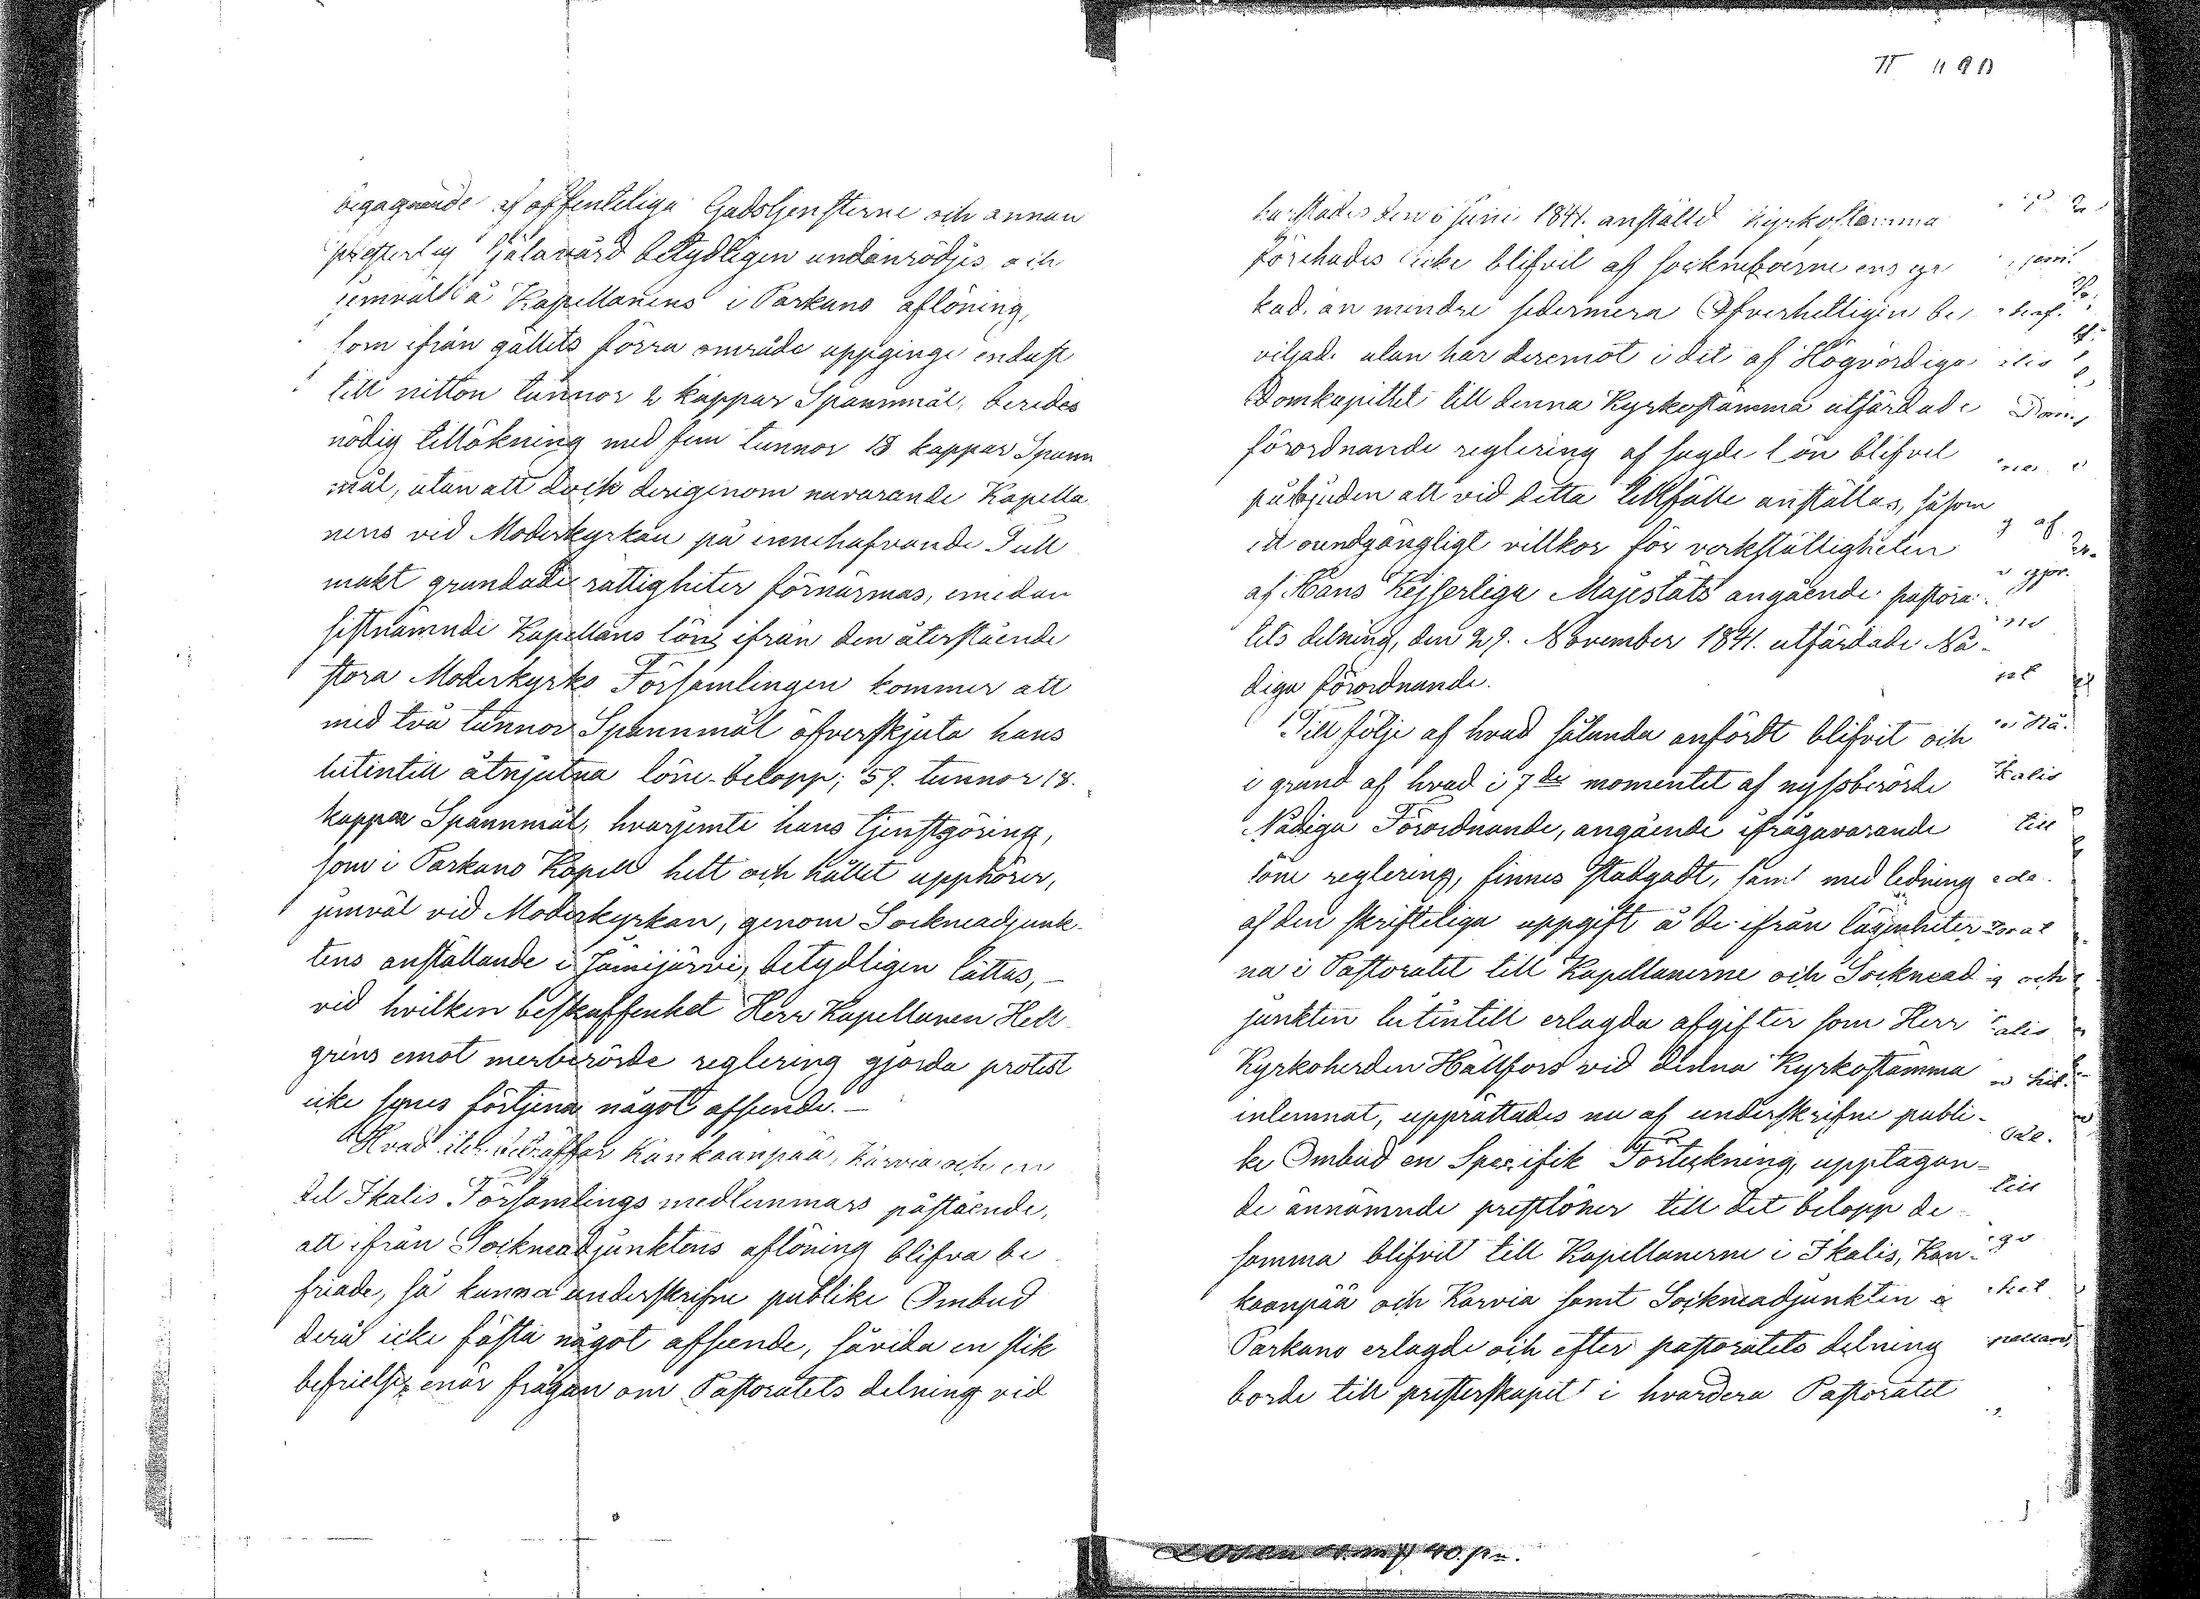 begagnande af offentliga Gudstjensterne och annan
presterlig Själavård betydligen undanrödjes och
jemväl å Kapellanens i Parkano aflöning,
som ifrån gällets förra område uppginge endast
till nitton tunnor 2 kappar Spannmål, beredes
nödig tillökning med fem tunnor 18 kappar Spann
mål, utan att dock derigenom nuvarande Kapella
nens vid Moderkyrkan på innehafvande Full
makt grundade rättigheter förnärmas, emedan
sistnämnde Kapellans lön ifrån den återstående
stora Moderkyrko Församlingen kommer att
med två tunnor Spannmål öfverskjuta hans
hitintill åtnjutna löne-belopp; 59. tunnor 18.
kappar Spannmål, hvarjemte hans tjenstgöring,
som i Parkano Kapell helt och hållet upphörer,
jemväl vid Moderkyrkan, genom Sockneadjunk-
tens anställande i Jämijärvi, betydligen lättas,-
vid hvilken beskaffenhet Herr Kapellanen Hell
gréns emot merberörde reglering gjorda protest
icke synes förtjena något afseende.-
Hvad åter beträffar Kankaanpää, Karvia och en
del Ikalis Församlings medlemmars påstående,
att ifrån Sockneadjunktens aflöning blifva be
friade, så kunna underskrifne publike Ombud
derå icke fästa något afseende, såvida en slik
befrielse enär frågan om Pastoratets delning vid
den 6 Juni 1841. anställd Kyrkostämma
förehades icke blifvit af socknéboerne ens yr
kad, än mindre sedermera Öfverheltigen be
viljad. utan har deremot i det af Högvördiga
Domkapitlet till denna Kyrkostämma utfärdade
förordnande reglering af sagde lön blifvit
påbjuden att vid detta tillfälle anställas, såsom
ett oundgängligt villkor för verkställigheten
af Hans Kejserliga Majestäts angående pastora-
tets delning, den 29. November 1841. utfärdade Nå-
diga förordnande.
Till följe af hvad sålunda anfördt blifvit och
i grund af hvad i 7de momentet af nyssberörde
Nådiga Förordnande, angående ifrågavarande
löne reglering, finnes stadgadt, samt med ledning
af den skrifteliga uppgift å de ifrån lägenheter
na i Pastoratet till Kapellanerne och Sockneåd
junkten hitintill erlagda afgifter som Herr
Kyrkoherden Hällfors vid denna Kyrkostämma
inlemnat, upprättades nu af underskrifne publi-
ke Ombud en Specifik Förteckning, upptagan-
de ännämnde prestlöner till det belopp de
samma blifvit till Kapellanerne i Ikalis, Kan-
kaanpää och Karvia samt Sockneadjunkten i
Parkano erlagde och efter pastoratets delning
borde till presterskapet i hvardera Pastoratet
40. p.